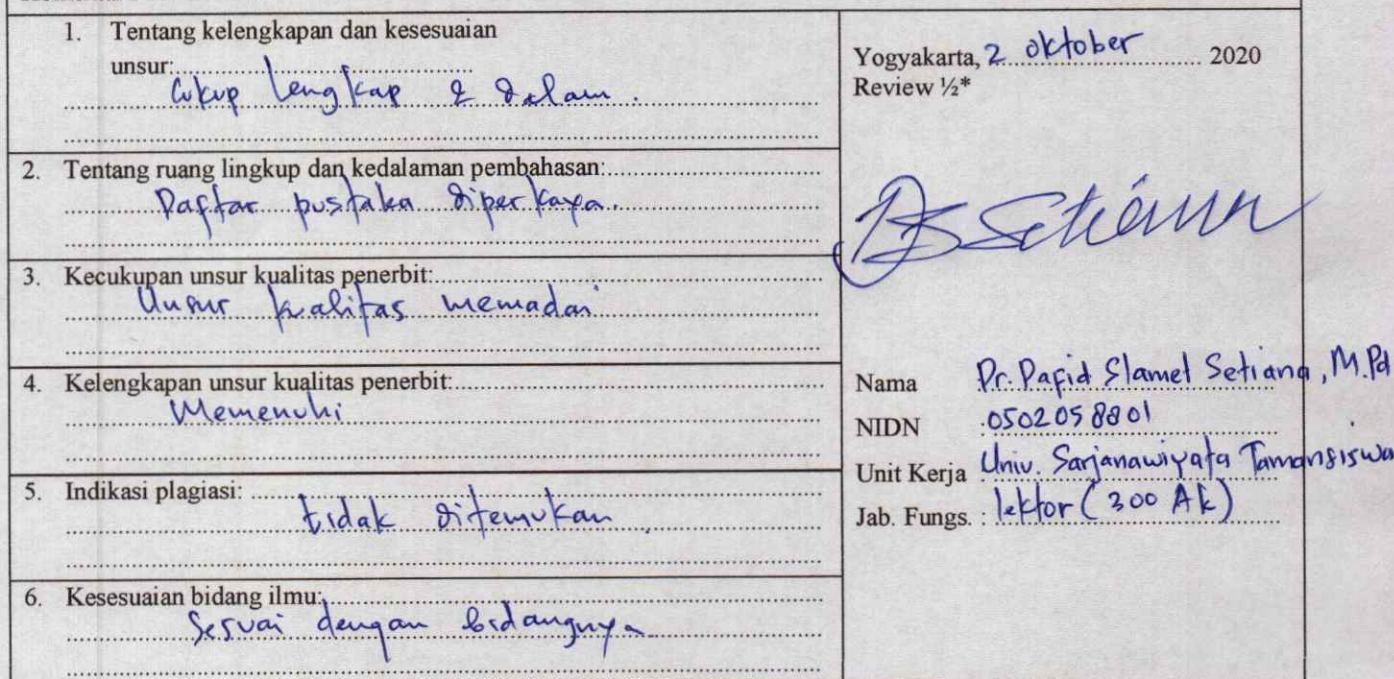 1. Tentang kelengkapan dan kesesuaian
unsur:
Cukup lengkap & dalam.
2. Tentang ruang lingkup dan kedalaman pembahasan:
Daftar pustaka diperkaya.
3. Kecukupan unsur kualitas penerbit:
Unsur kualitas memadai
4. Kelengkapan unsur kualitas penerbit:
Memenuhi
5. Indikasi plagiasi:
tidak ditemukan
6. Kesesuaian bidang ilmu:
Sesuai dengan bidangnya
Yogyakarta, 2 oktober 2020
Review ½*
Setiana
Nama Dr. Dafid Slamet Setiana, M.Pd
NIDN 0502058801
Unit Kerja Univ. Sarjanawiyata Tamansiswa
Jab. Fungs. : lektor (300 Ak)